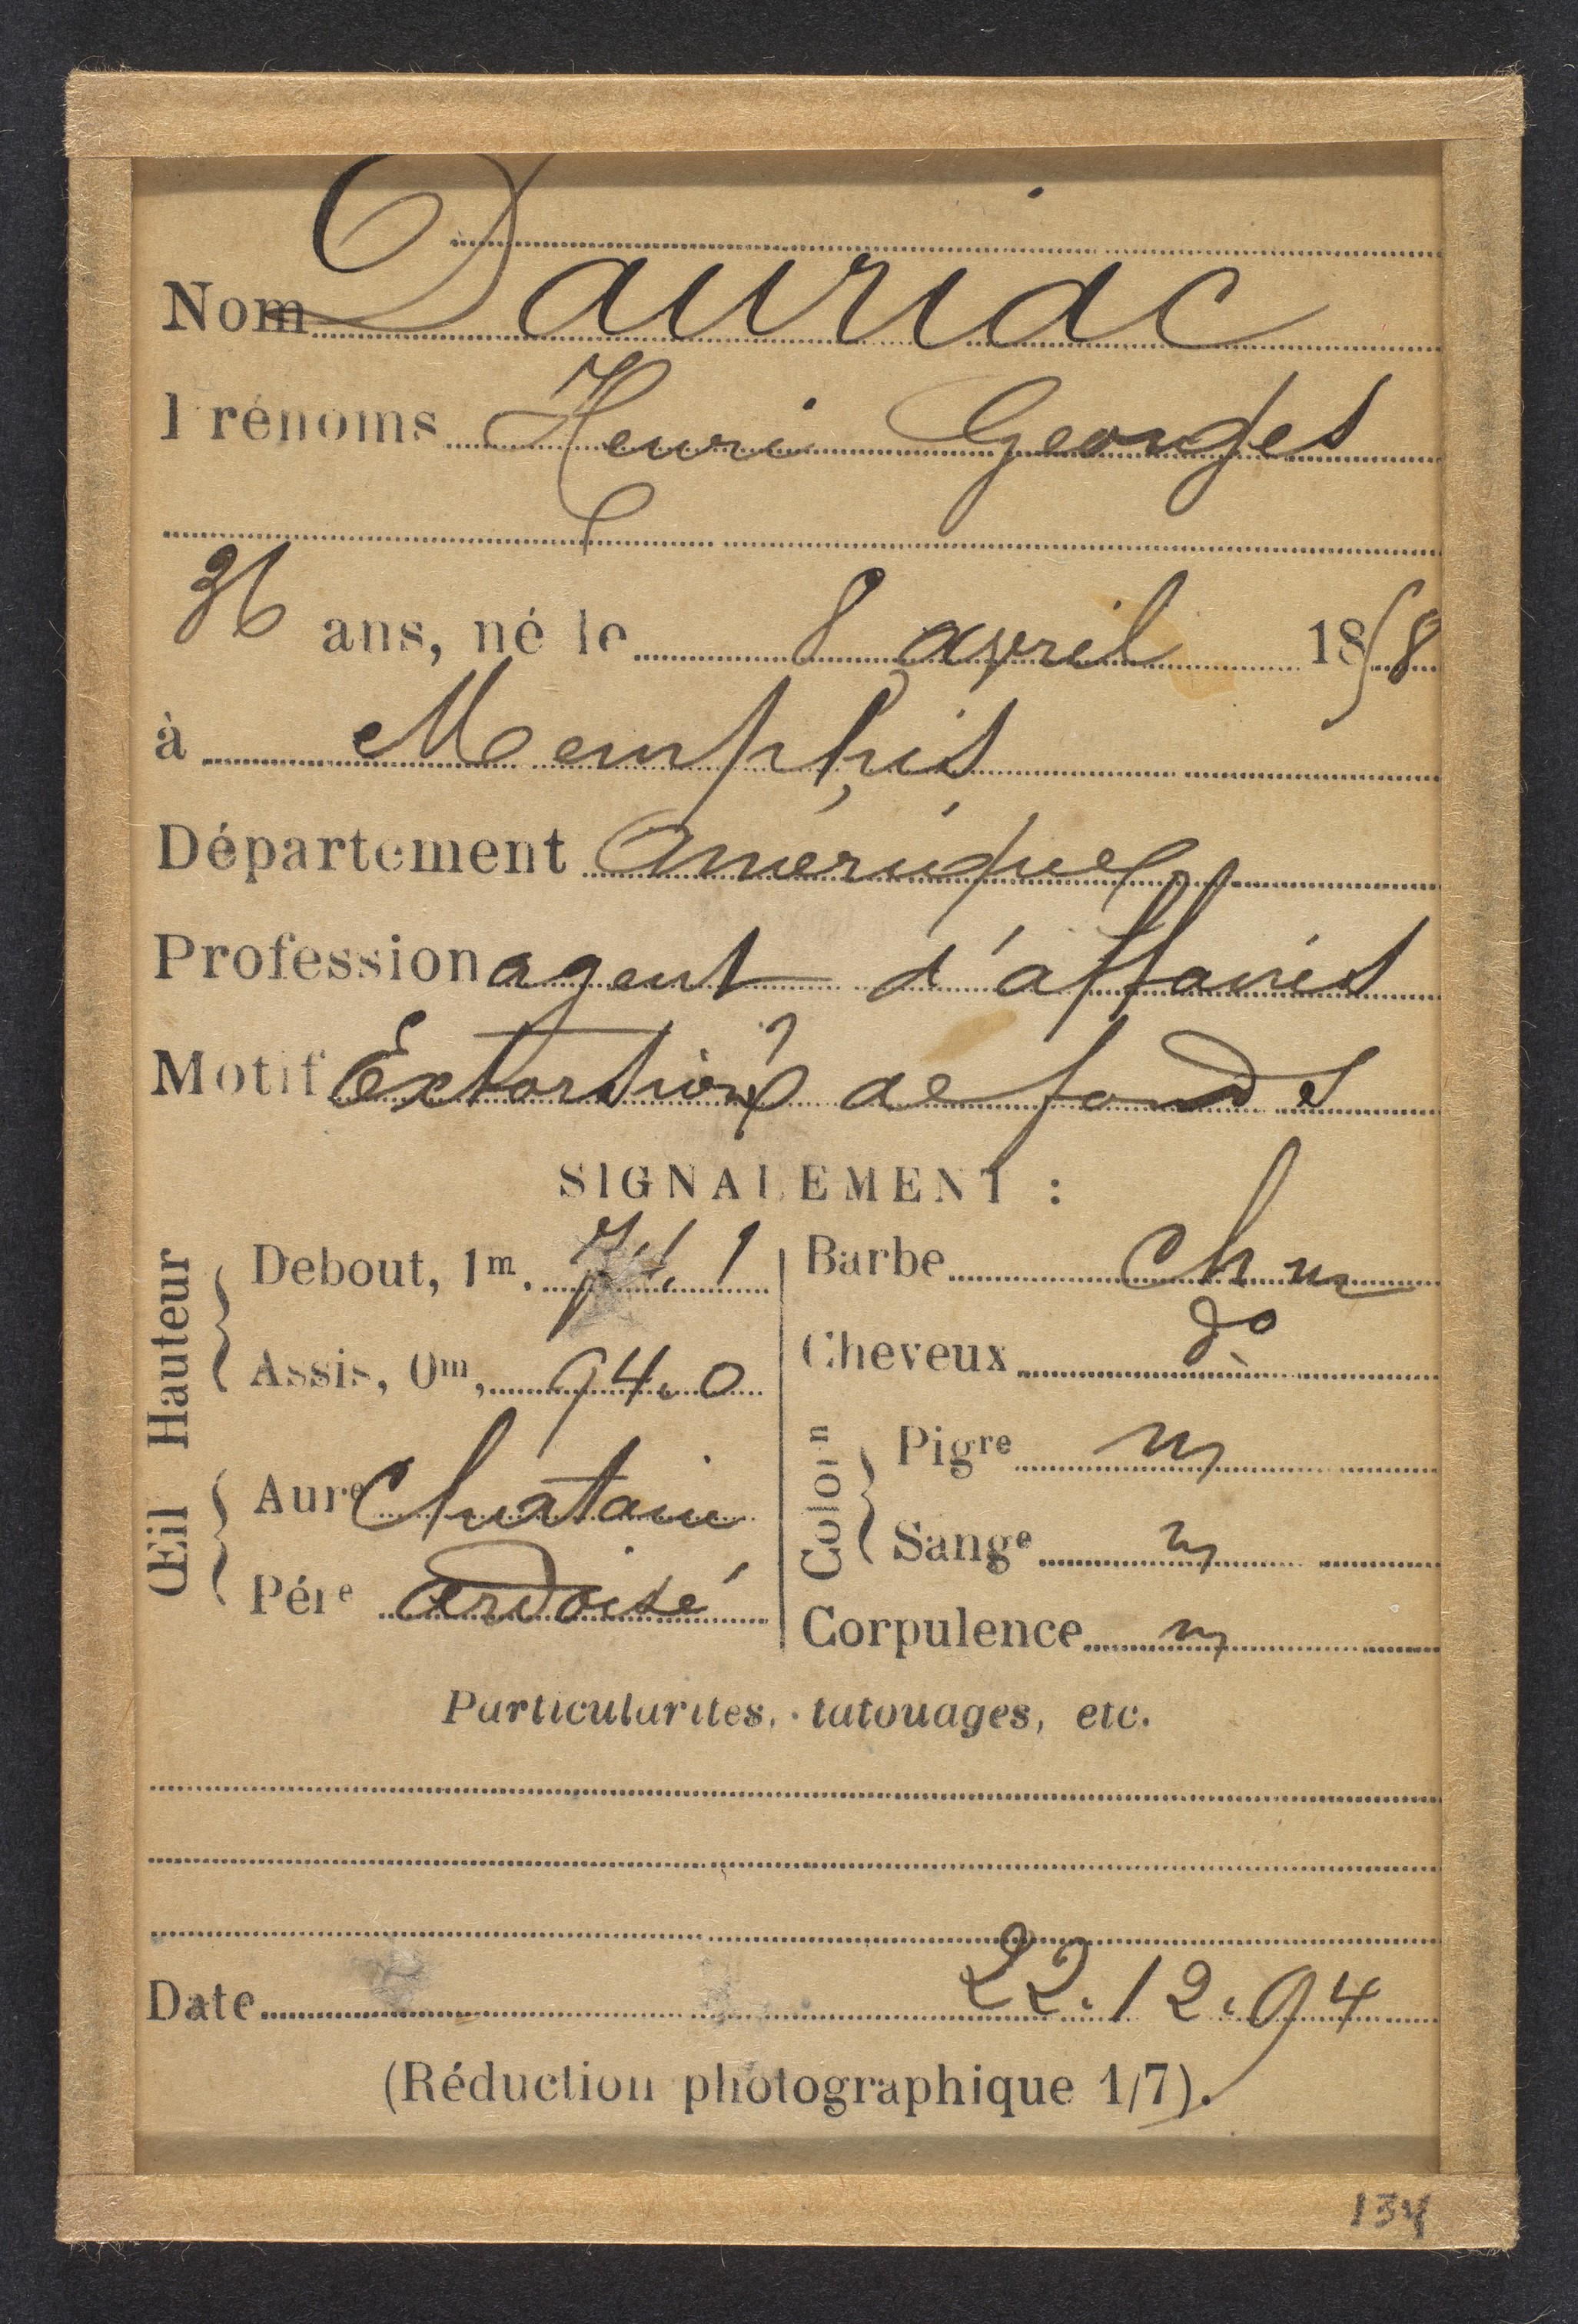 Nom Dauriac
Prénoms Henri Georges
36 ans, né le 8 avril 1858
à Memphis
Département Amérique
Profession agent d'affaires
Motif Extorsion de fonds
SIGNALEMENT :
Hauteur
Debout, 1m. 71.1
Assis, 0m, 94.0
Œil
Aure Chatain
Pére ardoisé
Barbe ch m
Cheveux do
Color n
Pigre m
Sange m
Corpulence m
Particularités, tatouages, etc.
Date 22.12.94
(Réduction photographique 1/7).
134